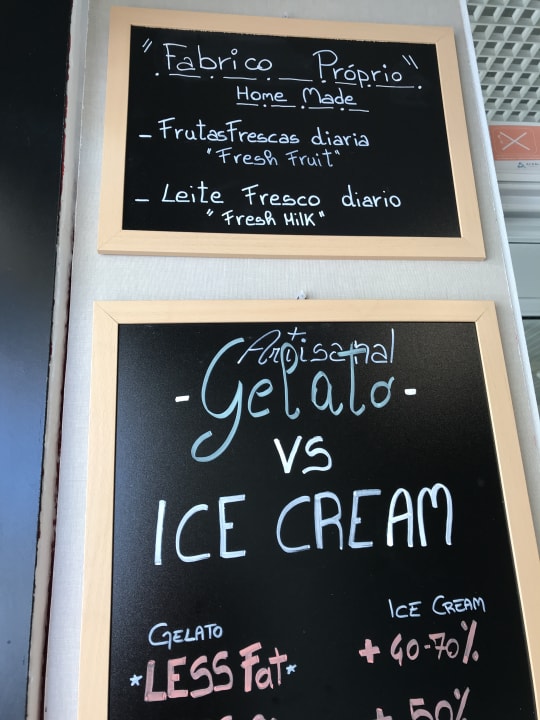 "Fabrico Próprio"
Home Made
- FrutasFrescas diaria
"Fresh Fruit"
- Leite Fresco diario
"Fresh Milk"
Artisanal
- Gelato -
VS
ICE CREAM
GELATO
ICE CREAM
*LESS Fat*
+ 40-70%
+ 50%